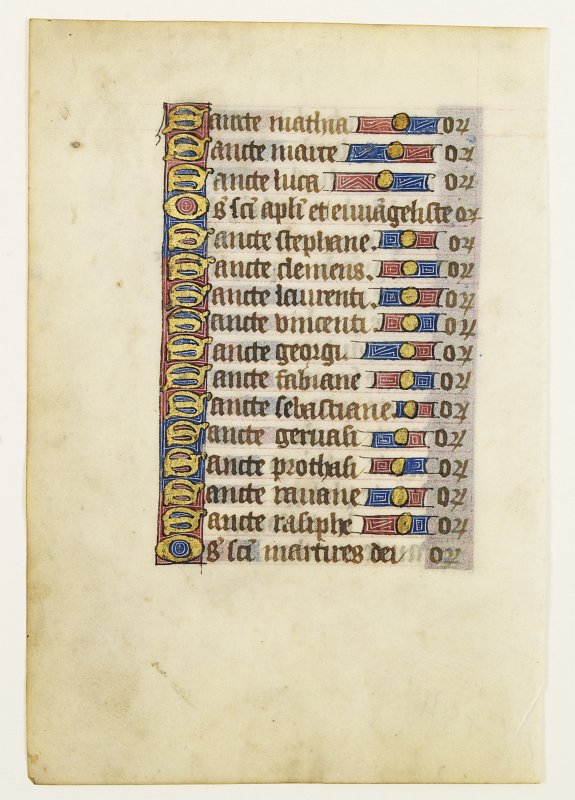 Sancte mathia or
Sancte marce or
Sancte luca or
Os sci apli et euuãgeliste or
Sancte stephane. or
Sancte clemens. or
Sancte laurenti. or
Sancte vincenti. or
Sancte georgi. or
Sancte fabiane or
Sancte sebastiane. or
Sancte geruasi or
Sancte prothasi or
Sancte rauane or
Sancte rasiphe or
Os sci martires dei or